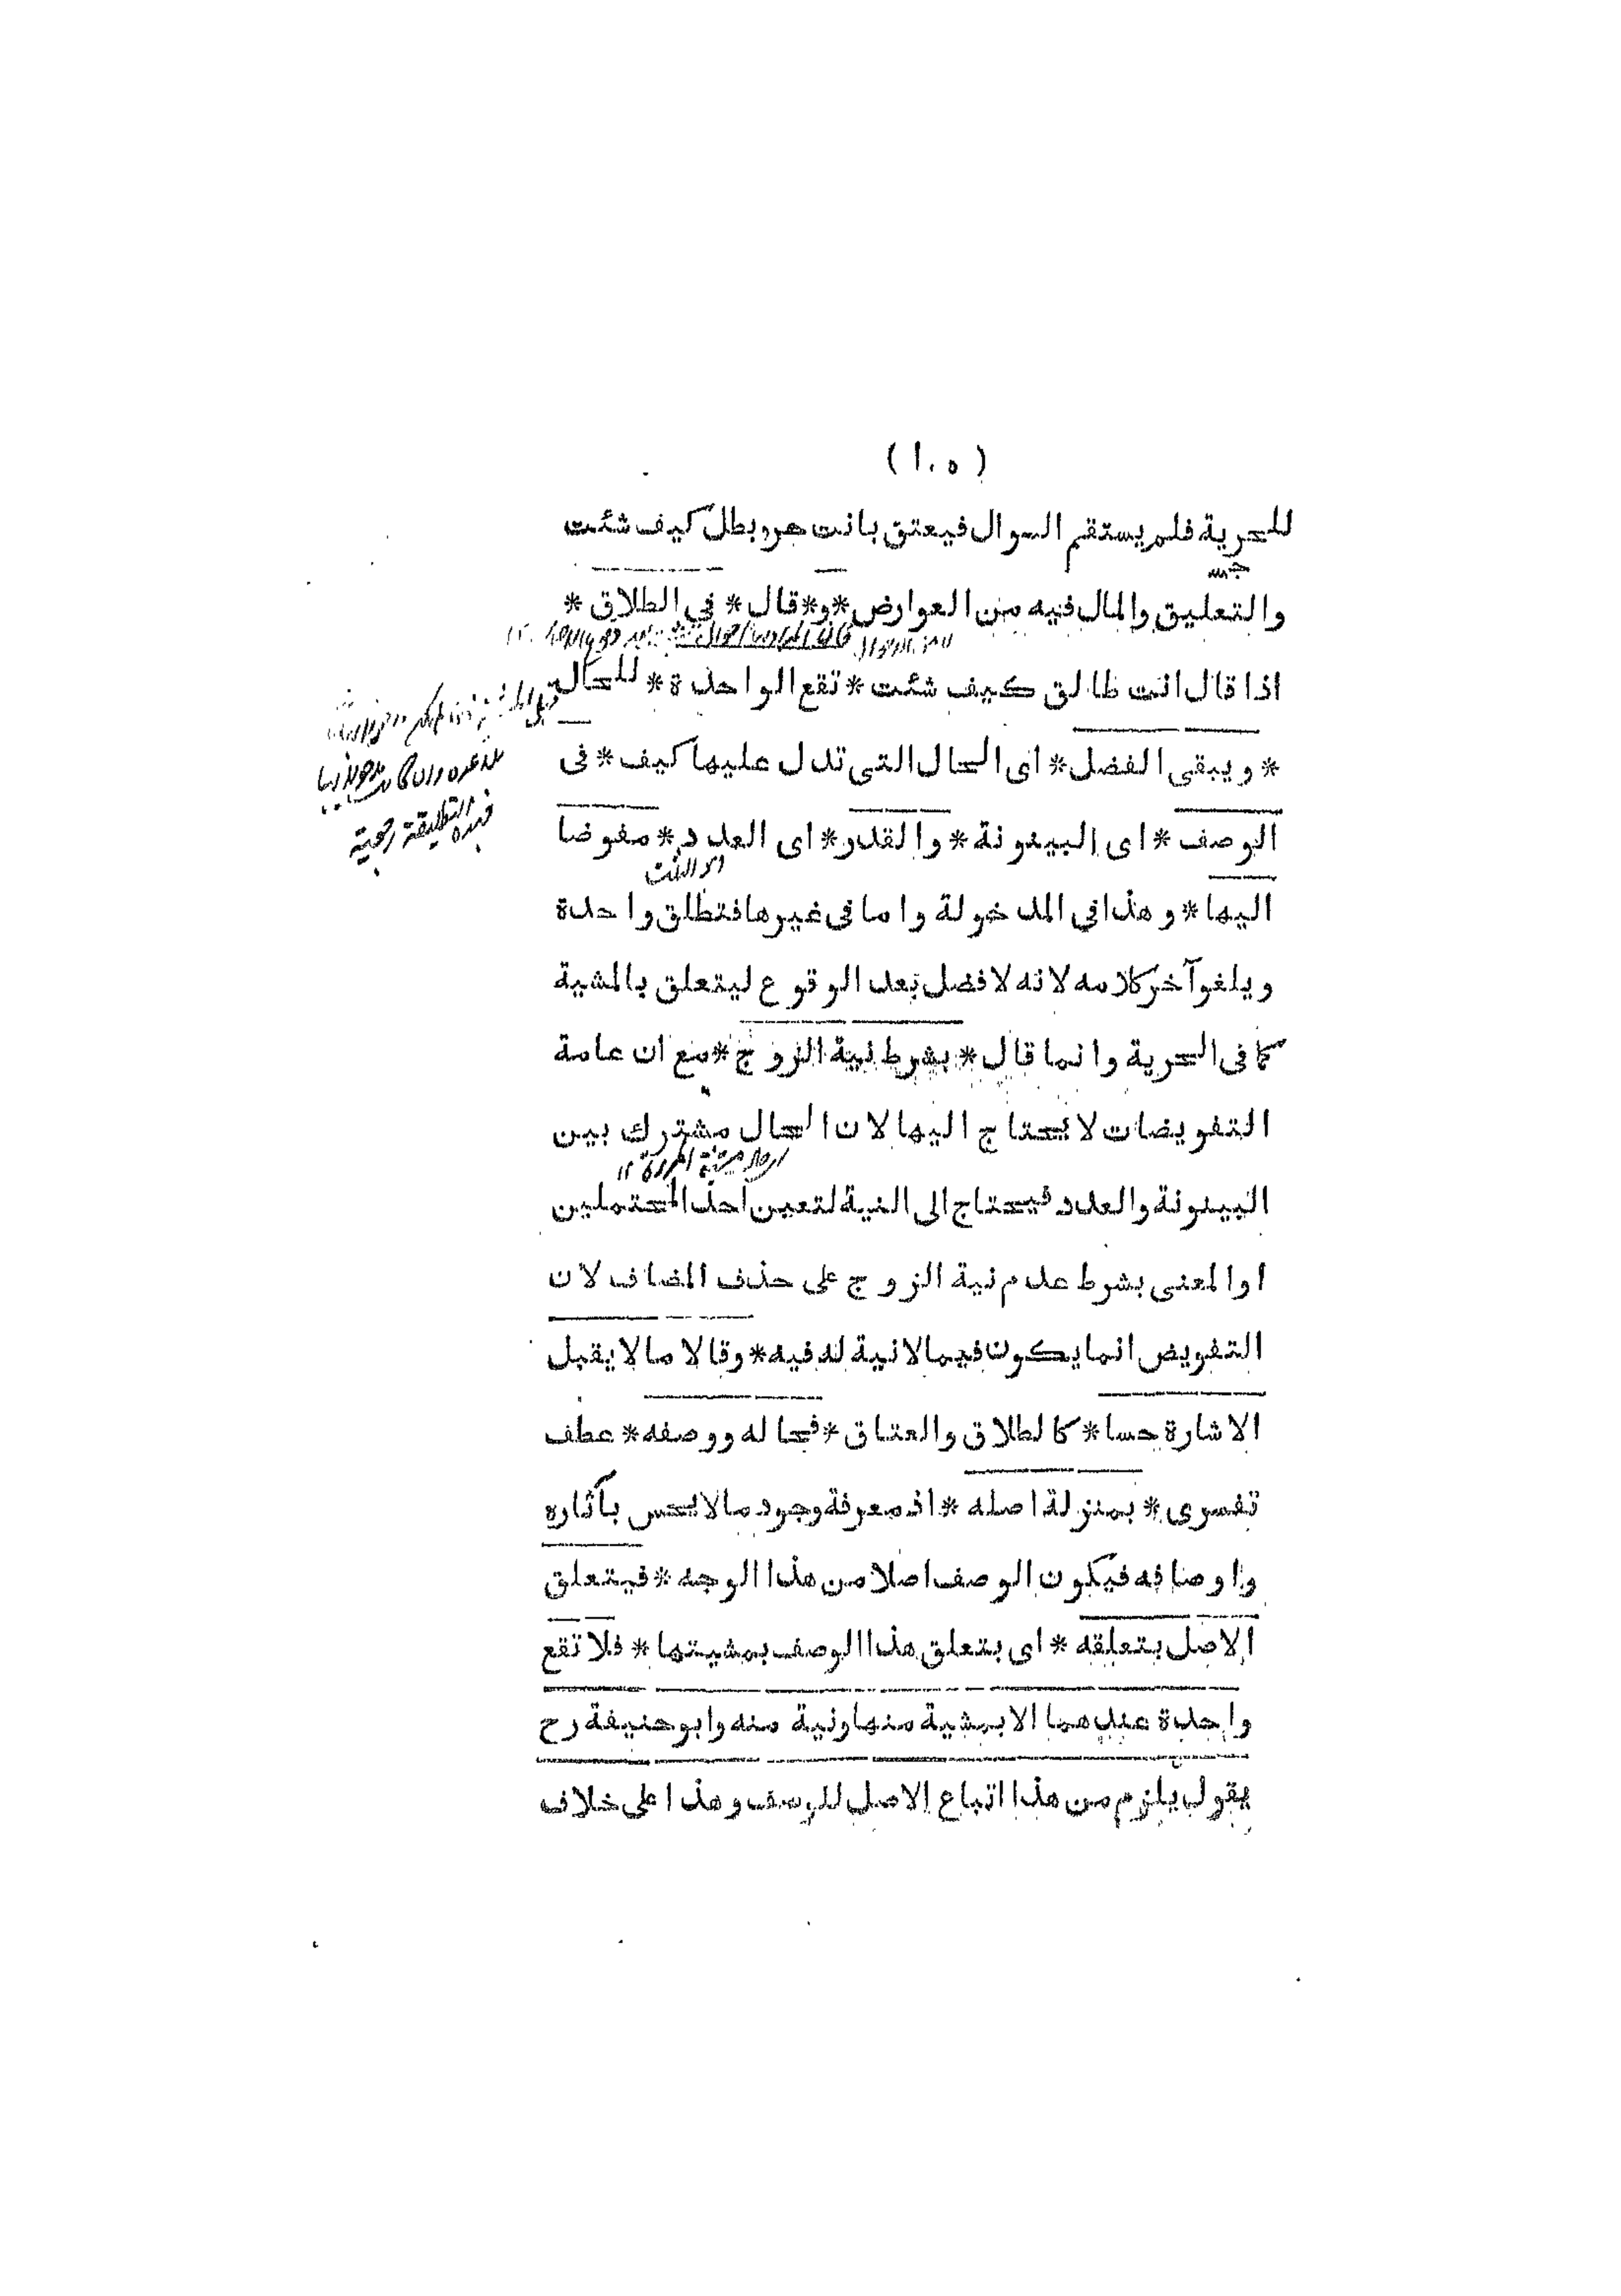 (١٠٥)
للحرية فلم يستقم السوال فيعتق بانت حر وبطل كيف شئت
والتعليق والمال فيه من العوارض * و * قال * في الطلاق *
اذا قال انت طالق كيف شئت * تقع الواحدة * للحال
* ويبقى الفضل * اى الحال التى تدل عليها كيف * فى
الوصف * اى البينونة * والقدر * اى العدد * مفوضا
اليها * وهذا في المدخولة واما فى غيرها فتطلق واحدة
ويلغو آخر كلامه لانه لا فضل بعد الوقوع ليتعلق بالمشية
كما فى الحرية وانما قال * بشرط نية الزوج * مع ان عامة
التفويضات لا يحتاج اليها لان الحال مشترك بين
البينونة والعدد فيحتاج الى النية لتعين احد المحتملين
او المعنى بشرط عدم نية الزوج على حذف المضاف لان
التفويض انما يكون فيما لا نية له فيه * وقالا ما لا يقبل
الاشارة حسا * كالطلاق والعتاق * فحاله ووصفه * عطف
تفسرى * بمنزلة اصله * اذ معرفة وجود ما لا يحس بآثاره
واوصافه فيكون الوصف اصلا من هذا الوجه * فيتعلق
الاصل بتعلقه * اى بتعلق هذا الوصف بمشيتها * فلا تقع
واحدة عندهما الا بمشية منها ونية منه وابو حنيفة رح
يقول يلزم من هذا اتباع الاصل للوصف وهذا على خلاف
فهذه التطليقة رجعية